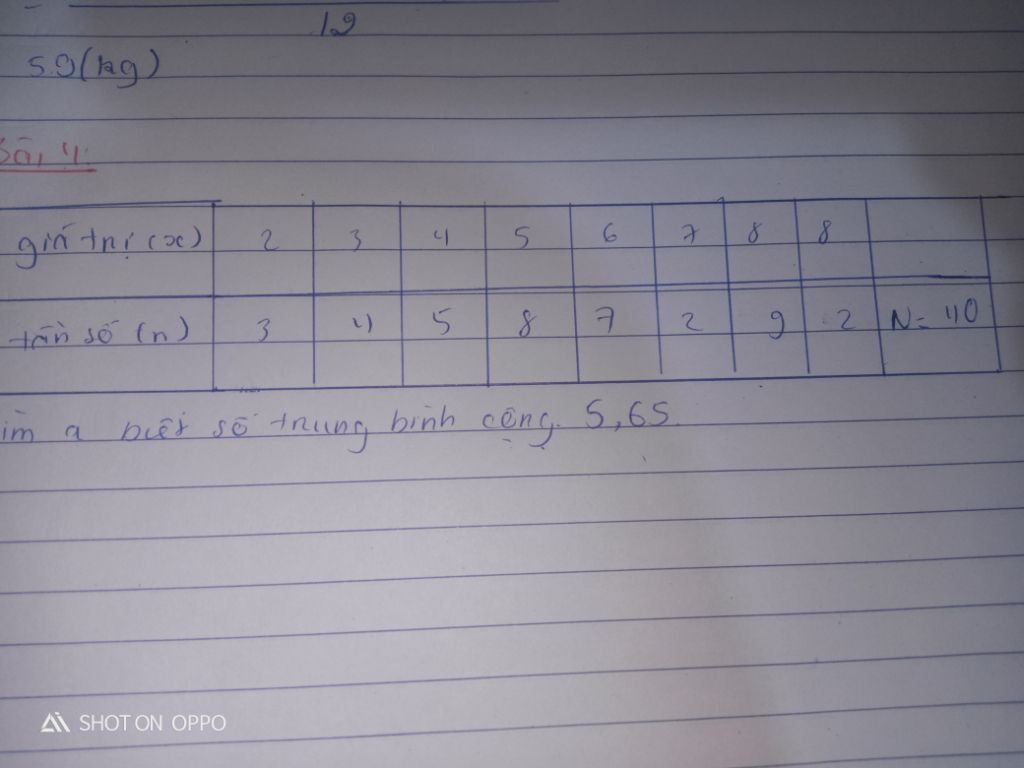 12
59(kg)
Bài 4:
giá trị (x) 2 3 4 5 6 7 8 8
tần số (n) 3 4 5 8 7 2 9 2 N = 40
ìm a biết số trung bình cộng. 5,65.
SHOT ON OPPO